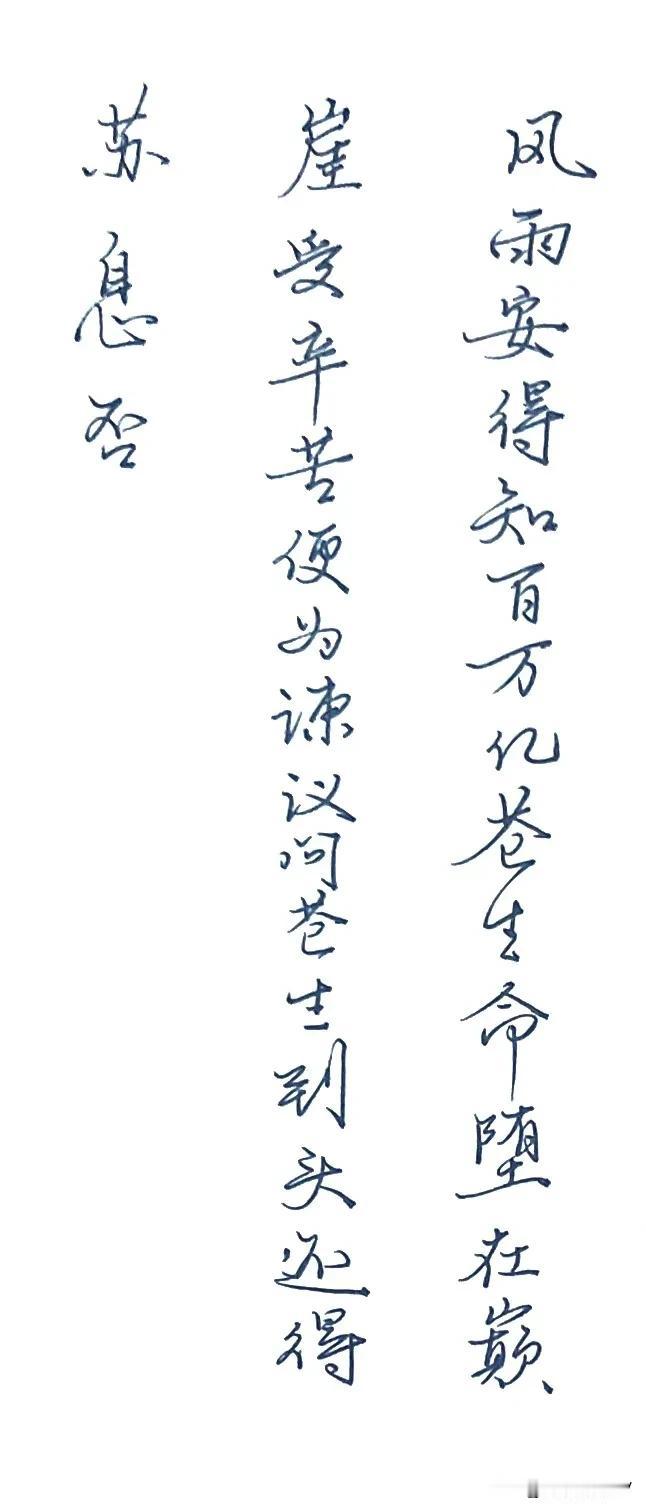 风雨安得知百万亿苍生命堕在巅
崖受辛苦便为谏议问苍生到头还得
苏息否